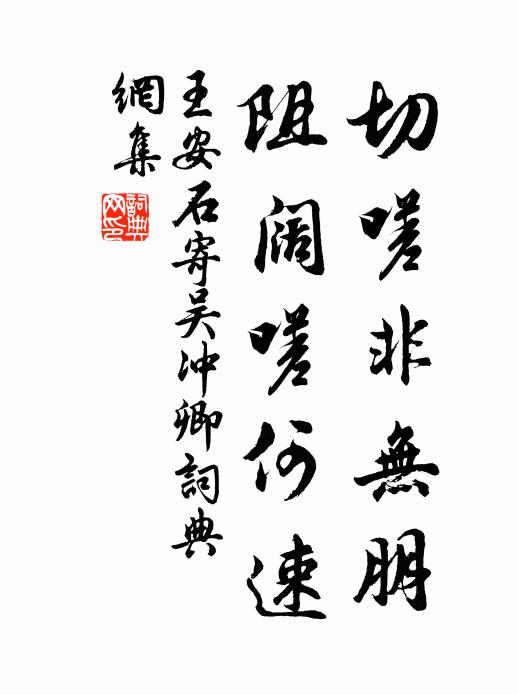 切嗟非無朋
阻阔嗟何速
王安石寄吴冲卿詞典
網集
詞典
网印